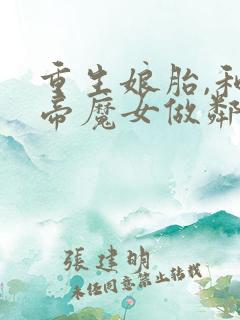 重生娘胎,和
帝魔女做鄰
張建明
未经同意禁止转载